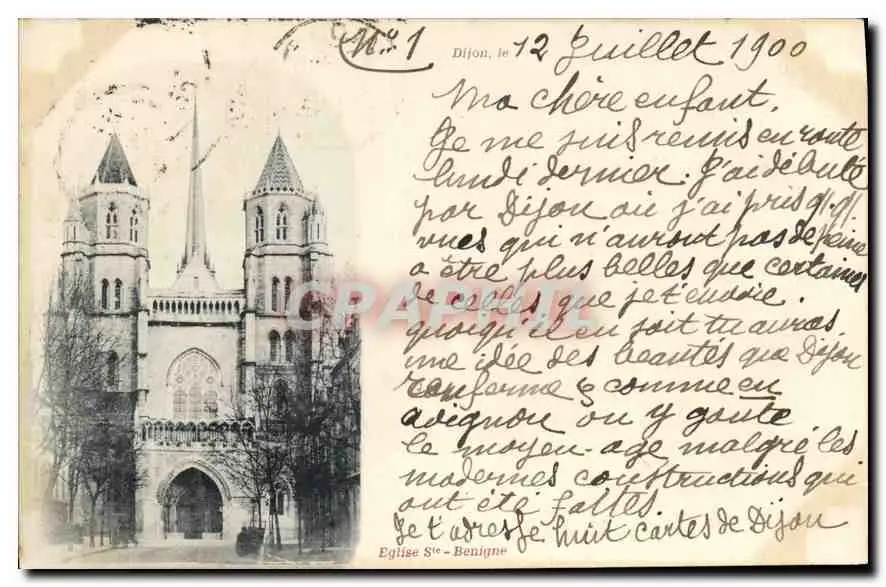 N° 1
Dijon, le 12 Juillet 1900
Ma chère enfant,
Je me suis remis en route
lundi dernier. J'ai débuté
par Dijon où j'ai pris qq.
vues qui n'auront pas de peine
a être plus belles que certaines
de celles que je t'envoie.
quoiqu'il en soit tu auras
une idée des beautés que Dijon
renferme & comme en
avignon on y goute
le moyen-age malgré les
modernes constructions qui
ont été faites
Je t'adresse huit cartes de Dijon
Eglise Ste - Benigne
CPAPHIL